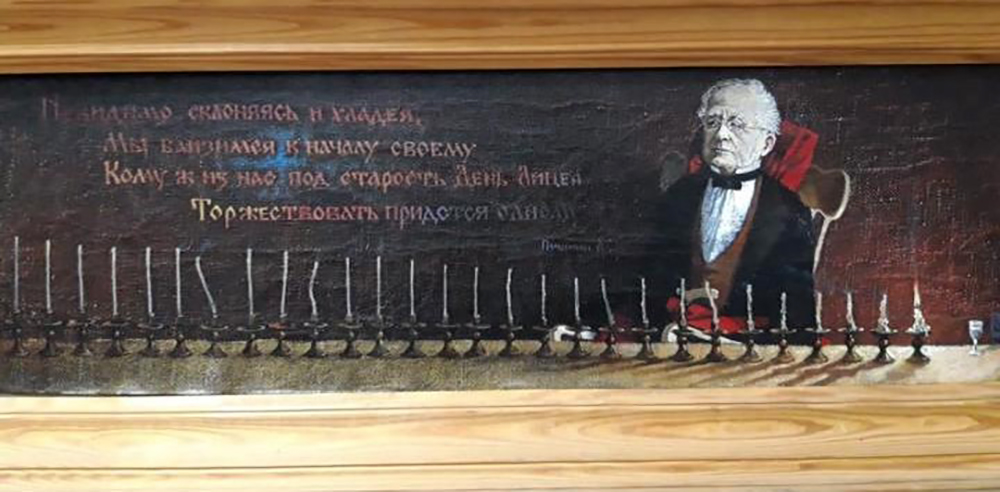 Невидимо склоняясь и хладея,
Мы близимся к началу своему
Кому ж из нас под старость День Лицея
Торжествовать придется одному